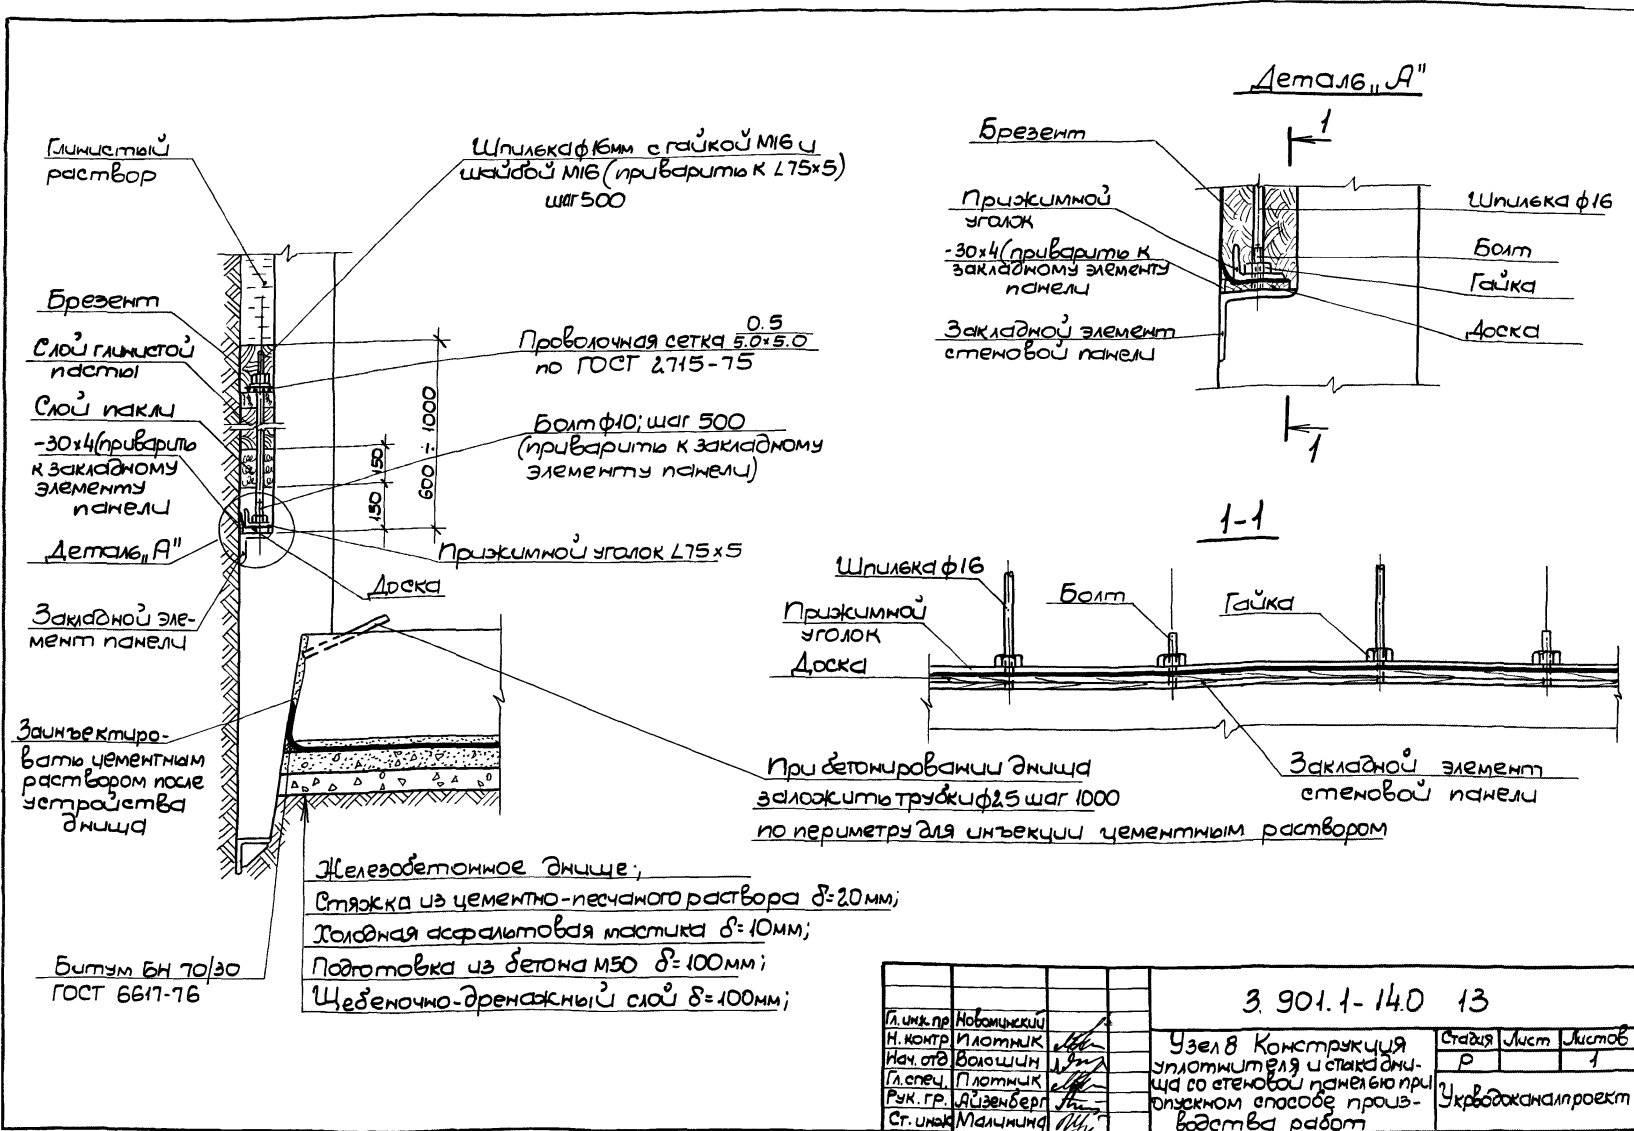 Глинистый
раствор
Шпилька ф16мм с гайкой М16 и
шайбой М16 (приварить к L75×5)
шаг 500
Брезент
Слой глинистой
пасты
Слой пакли
-30×4(приварить
к закладному
элементу
панели
Деталь „А"
Закладной эле-
мент панели
Проволочная сетка 0.5
5.0×5.0
по ГОСТ 2715-75
Болт ф10; шаг 500
(приварить к закладному
элементу панели)
600 ÷ 1000
150
150
Прижимной уголок L75×5
Доска
Заинъектиро-
вать цементным
раствором после
устройства
днища
При бетонировании днища
заложить трубки ф25 шаг 1000
по периметру для инъекции цементным раствором
Железобетонное днище;
Стяжка из цементно-песчаного раствора δ=20мм;
Холодная асфальтовая мастика δ=10мм;
Подготовка из бетона М50 δ=100мм;
Щебеночно-дренажный слой δ=100мм;
Битум БН 70/30
ГОСТ 6617-76
Деталь „А"
1
Брезент
Прижимной
уголок
-30×4(приварить к
закладному элементу
панели
Закладной элемент
стеновой панели
Шпилька ф16
Болт
Гайка
Доска
1
1-1
Шпилька ф16
Прижимной
уголок
Доска
Болт
Гайка
Закладной элемент
стеновой панели
3.901.1-14.0 13
Гл. инж. пр Новоминский
Н. контр Плотник
Нач. отд Волошин
Гл. спец. Плотник
Рук. гр. Айзенберг
Ст. инж Малинина
Узел 8 Конструкция
уплотнителя и стыка дни-
ща со стеновой панелью при
опускном способе произ-
водства работ
Стадия Лист Листов
Р 1
Укрводоканалпроект